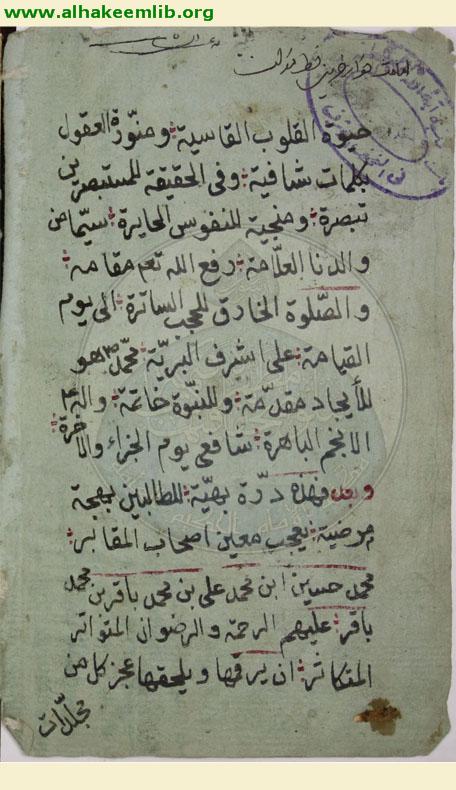 www.alhakeemlib.org
حيوة القلوب القاسية ومنوّرة العقول
بكلمات شافية وفي الحقيقة للمستبصرين
تبصرة ومنجية للنفوس الحايرة سيّما من
والدنا العلّامة رفع الله تعم مقامه
والصّلوة الخارق للحجب الساترة الى يوم
القيامة على اشرف البريّة محمّد ص هو
للأيجاد مقدّمة وللنبوّة خاتمة واله
الانجم الباهرة شافعي يوم الجزاء والاخرة
وبعد فهذه درّة بهيّة للطالبين بهجة
مرضية يعجب معين اصحاب المقابر
محمد حسين ابن محمد علي بن محمد باقر بن محمد
باقر عليهم الرحمة والرضوان المتواتر
المتكاثر ان يرقها ويلحقها عجز كل من
مجلّدات